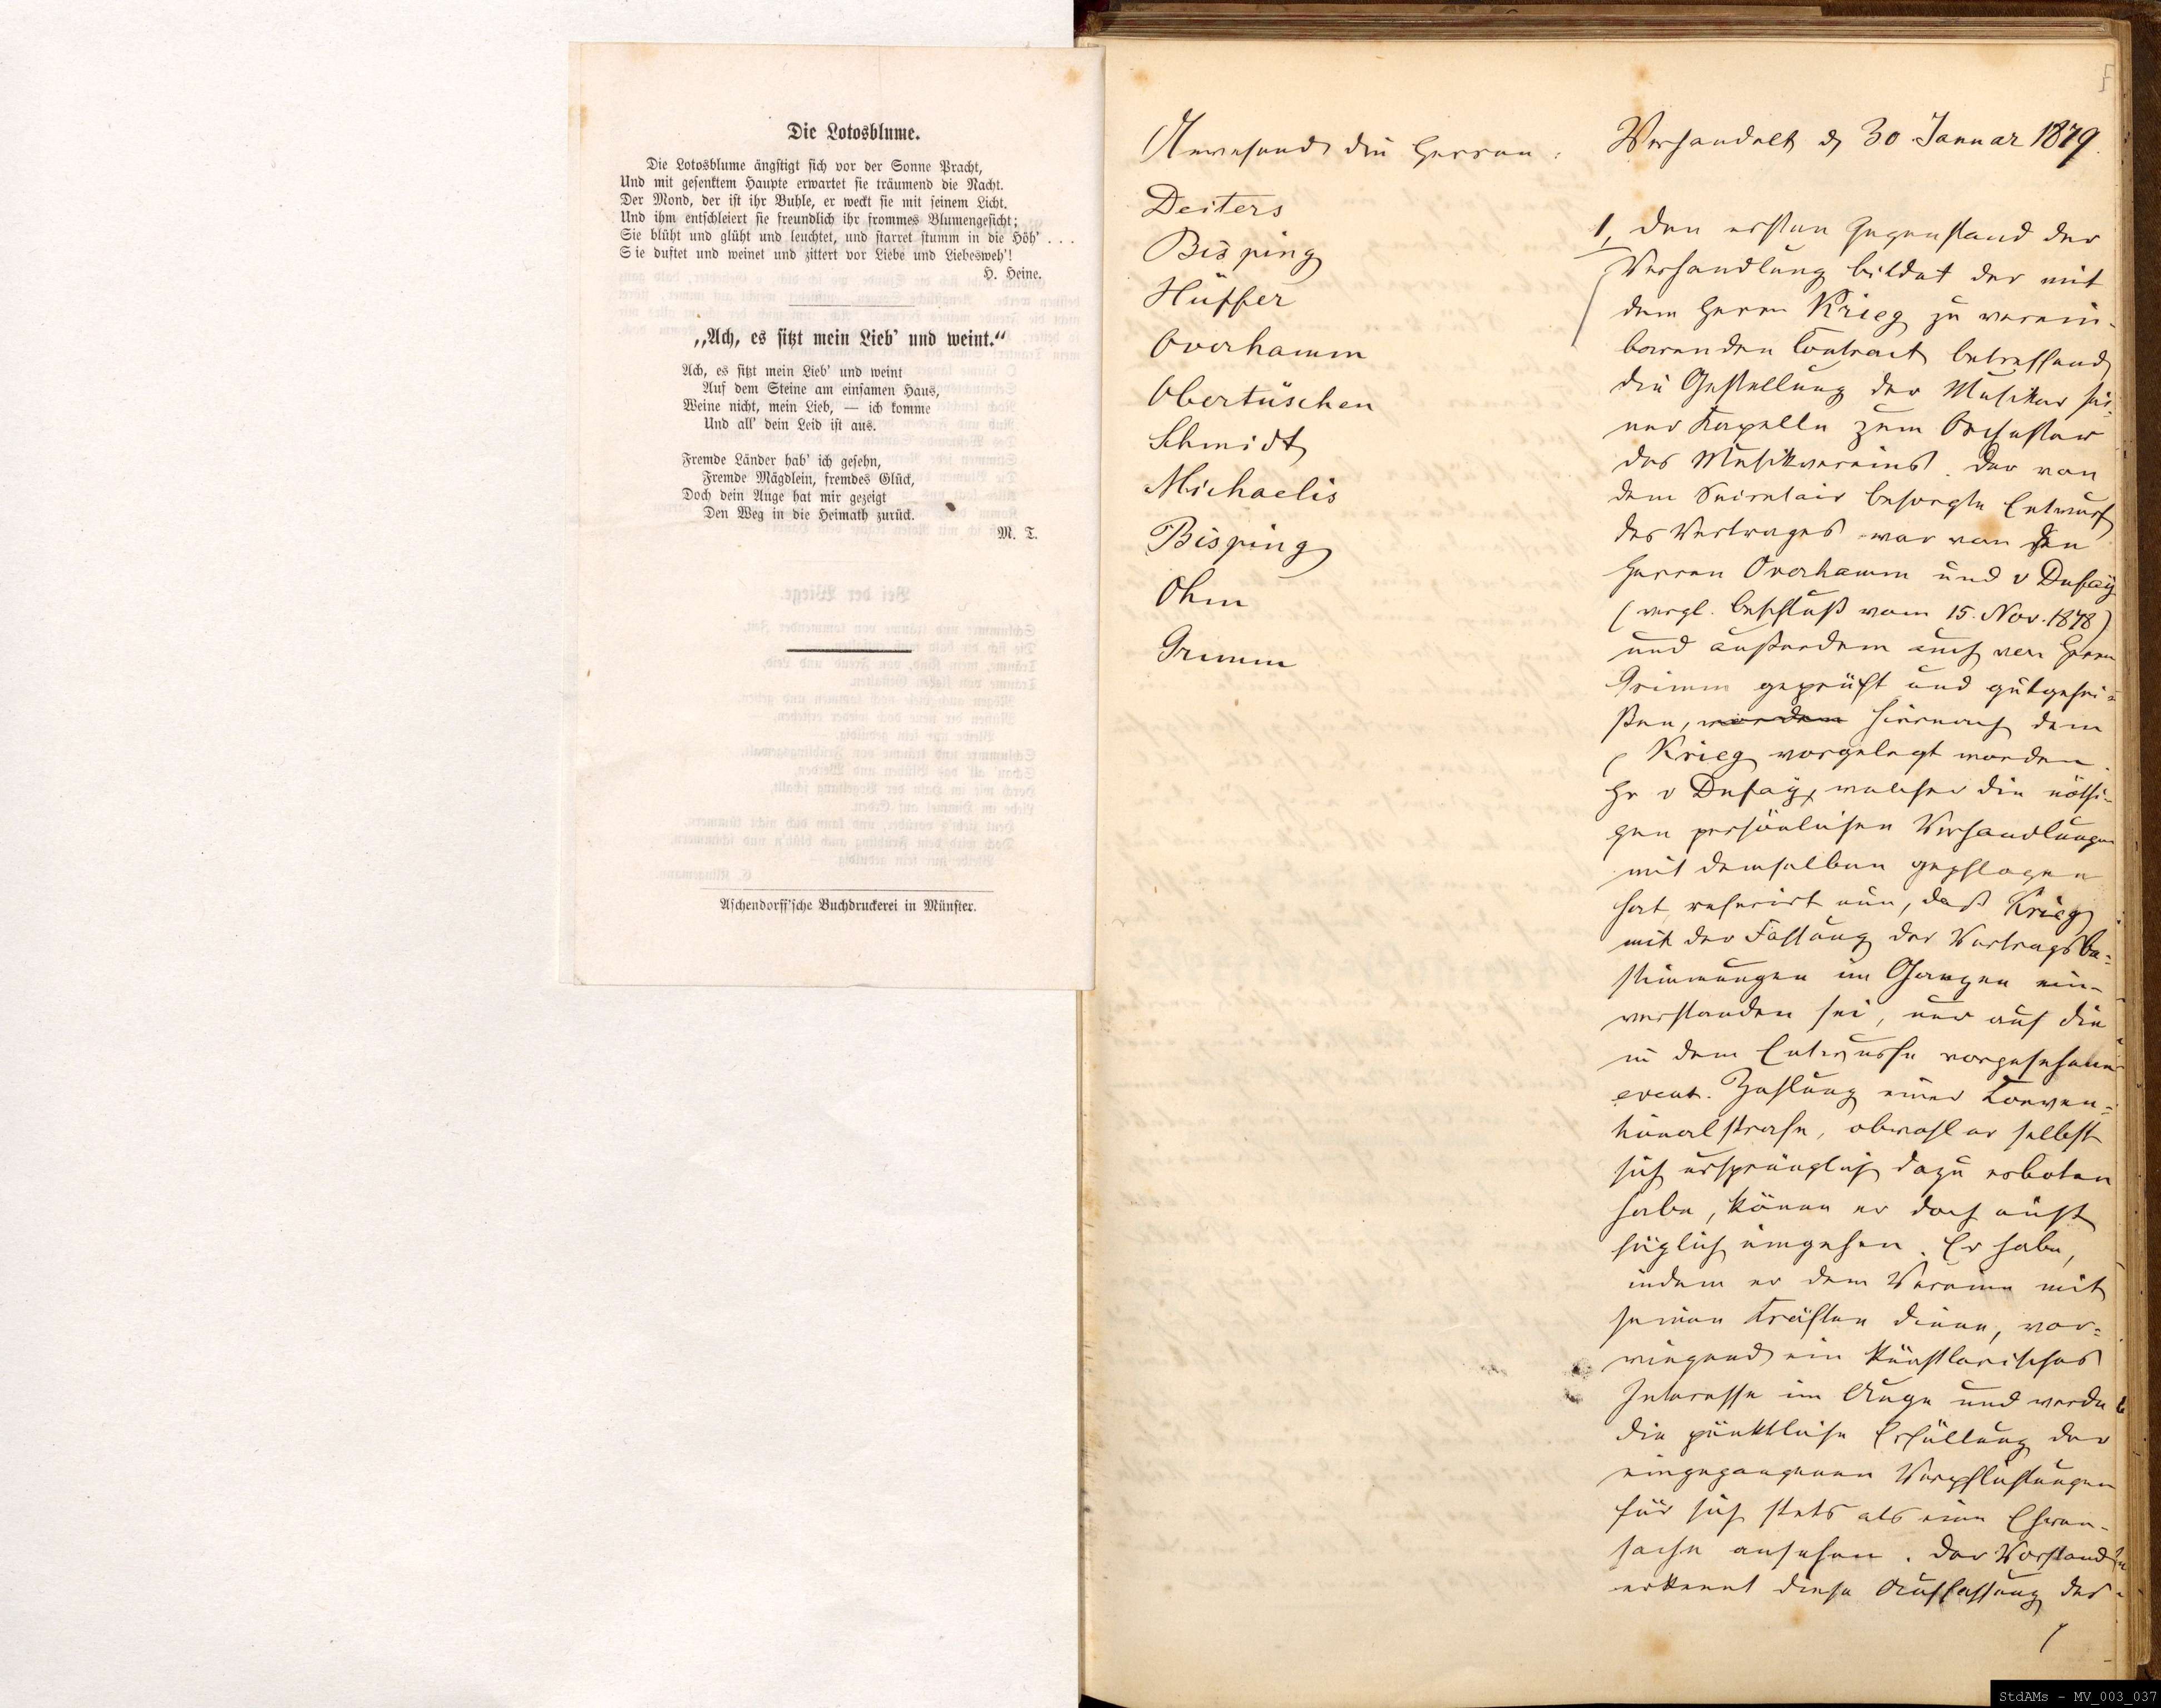 Die Lotosblume.
Die Lotosblume ängstigt sich vor der Sonne Pracht,
Und mit gesenktem Haupte erwartet sie träumend die Nacht.
Der Mond, der ist ihr Buhle, er weckt sie mit seinem Licht.
Und ihm entschleiert sie freundlich ihr frommes Blumengesicht;
Sie blüht und glüht und leuchtet, und starret stumm in die Höh' . . .
Sie duftet und weinet und zittert vor Liebe und Liebesweh'!
H. Heine.
„Ach, es sitzt mein Lieb' und weint."
Ach, es sitzt mein Lieb' und weint
Auf dem Steine am einsamen Haus,
Weine nicht, mein Lieb, — ich komme
Und all' dein Leid ist aus.
Fremde Länder hab' ich gesehn,
Fremde Mägdlein, fremdes Glück,
Doch dein Auge hat mir gezeigt
Den Weg in die Heimath zurück.
M. T.
Aschendorff'sche Buchdruckerei in Münster.
Anwesend die Herren:
Deiters
Bisping
Hüffer
Overhamm
Obertüschen
Schmidt
Michaelis
Bisping
Ohm
Grimm
Verhandelt d 30 Januar 1879.
1, Den ersten Gegenstand der
Verhandlung bildet der mit
dem Herrn Krieg zu verein-
barenden Contract betreffend
die Gestellung der Musiker sei-
ner Kapelle zum Orchester
des Musikvereins. Der von
dem Secretair besorgte Entwurf
des Vertrages war von den
Herren Overhamm und v Dufay
(vergl. Beschluß vom 15. Nov. 1878)
und außerdem auch von Herrn
Grimm geprüft und gutgehei-
ßen, worden hiernach dem
Krieg vorgelegt worden.
Hr v Dufay, welcher die nöthi-
gen persönlichen Verhandlungen
mit demselben gepflogen
hat, referirt nun, daß Krieg
mit der Fassung der Vertragsbe-
stimmungen im Ganzen ein-
verstanden sei, nur auf die
in dem Entwurfe vorgesehene
event. Zahlung einer Conven-
tionalstrafe, obwohl er selbst
sich ursprünglich dazu erboten
habe, könne er doch nicht
füglich eingehen. Er habe,
indem er dem Vereine mit
seinen Kräften diene, vor-
wiegend ein künstlerisches
Interesse im Auge und werde
die pünktliche Erfüllung der
eingegangenen Verpflichtungen
für sich stets als eine Ehren-
sache ansehen. Der Vorstand
erkennt diese Auffassung des
StdAMs - MV_003_037